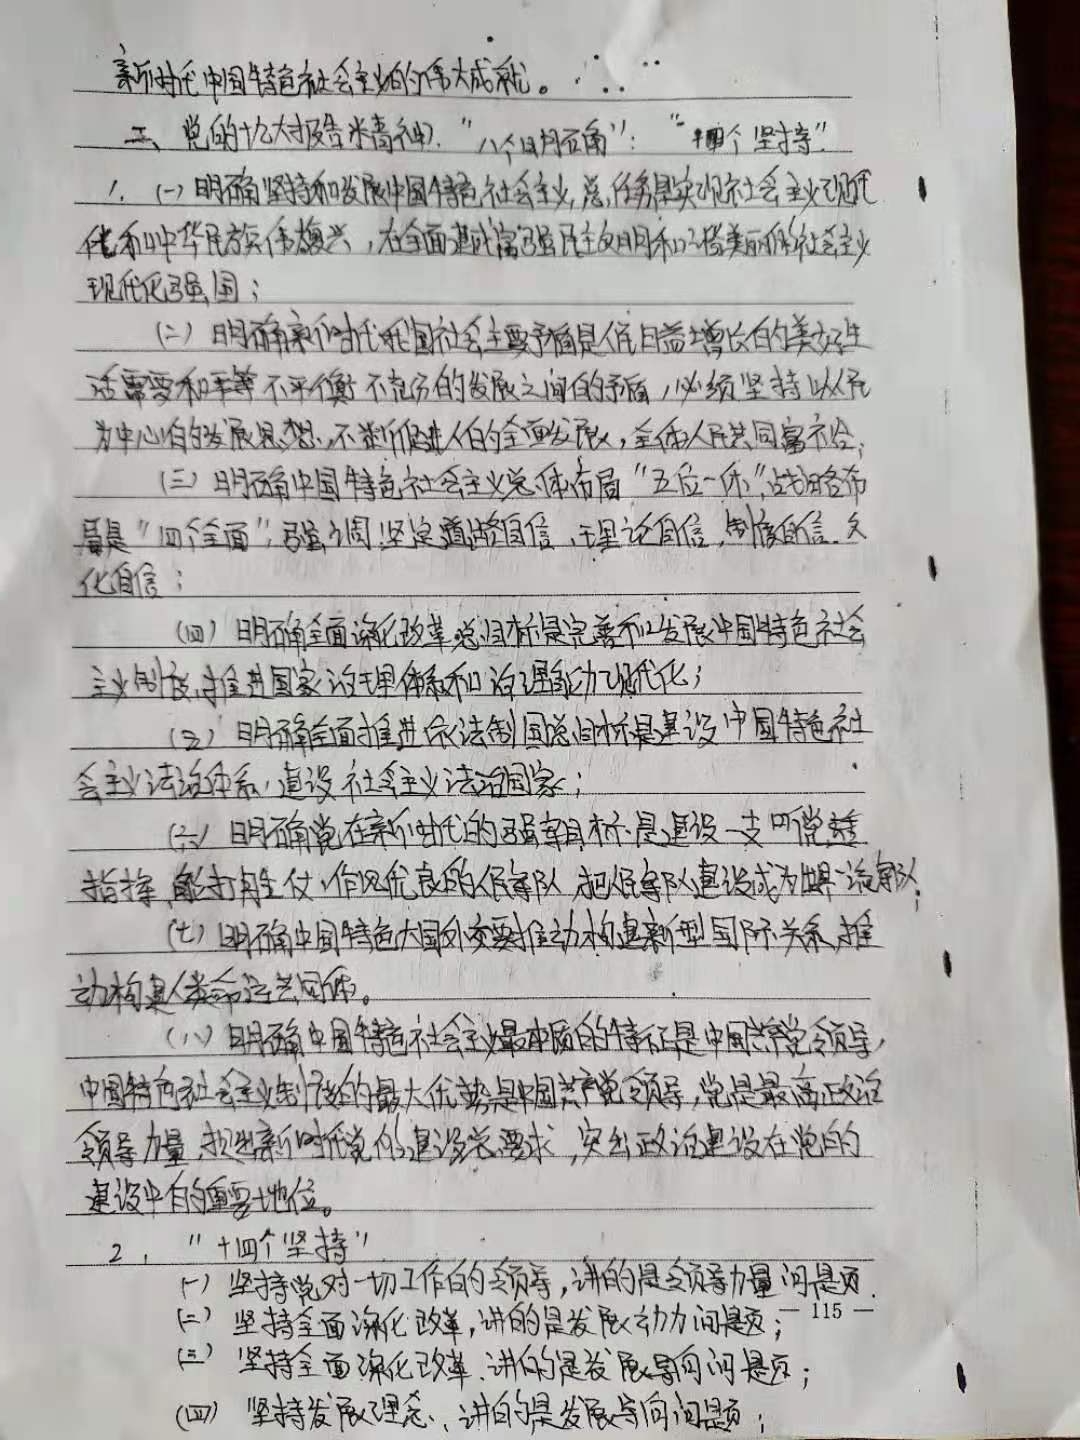 新时代中国特色社会主义的伟大成就。
二、党的十九大报告精神："八个明确"："十四个坚持"
1、(一)明确坚持和发展中国特色社会主义,总任务是实现社会主义现代
化和中华民族伟大复兴,在全面建成富强民主文明和谐美丽的社会主义
现代化强国;
(二)明确新时代我国社会主要矛盾是人民日益增长的美好生
活需要和不平衡不充分的发展之间的矛盾,必须坚持以人民
为中心的发展思想,不断促进人的全面发展,全体人民共同富裕;
(三)明确中国特色社会主义总体布局"五位一体",战略布
局是"四个全面",强调坚定道路自信,理论自信,制度自信、文
化自信;
(四)明确全面深化改革总目标是完善和发展中国特色社会
主义制度,推进国家治理体系和治理能力现代化;
(五)明确全面推进依法制国总目标是建设中国特色社
会主义法治体系,建设社会主义法治国家;
(六)明确党在新时代的强军目标是建设一支听党
指挥,能打胜仗,作风优良的人民军队,把人民军队建设成为世界一流军队;
(七)明确中国特色大国外交要推动构建新型国际关系,推
动构建人类命运共同体。
(八)明确中国特色社会主义最本质的特征是中国共产党领导,
中国特色社会主义制度的最大优势是中国共产党领导,党是最高政治
领导力量,提出新时代党的建设总要求,突出政治建设在党的
建设中的重要地位。
2、"十四个坚持"
(一)坚持党对一切工作的领导,讲的是领导力量问题.
(二)坚持全面深化改革,讲的是发展动力问题;
— 115 —
(三)坚持全面深化改革、讲的是发展导向问题;
(四)坚持发展理念、讲的是发展导向问题;